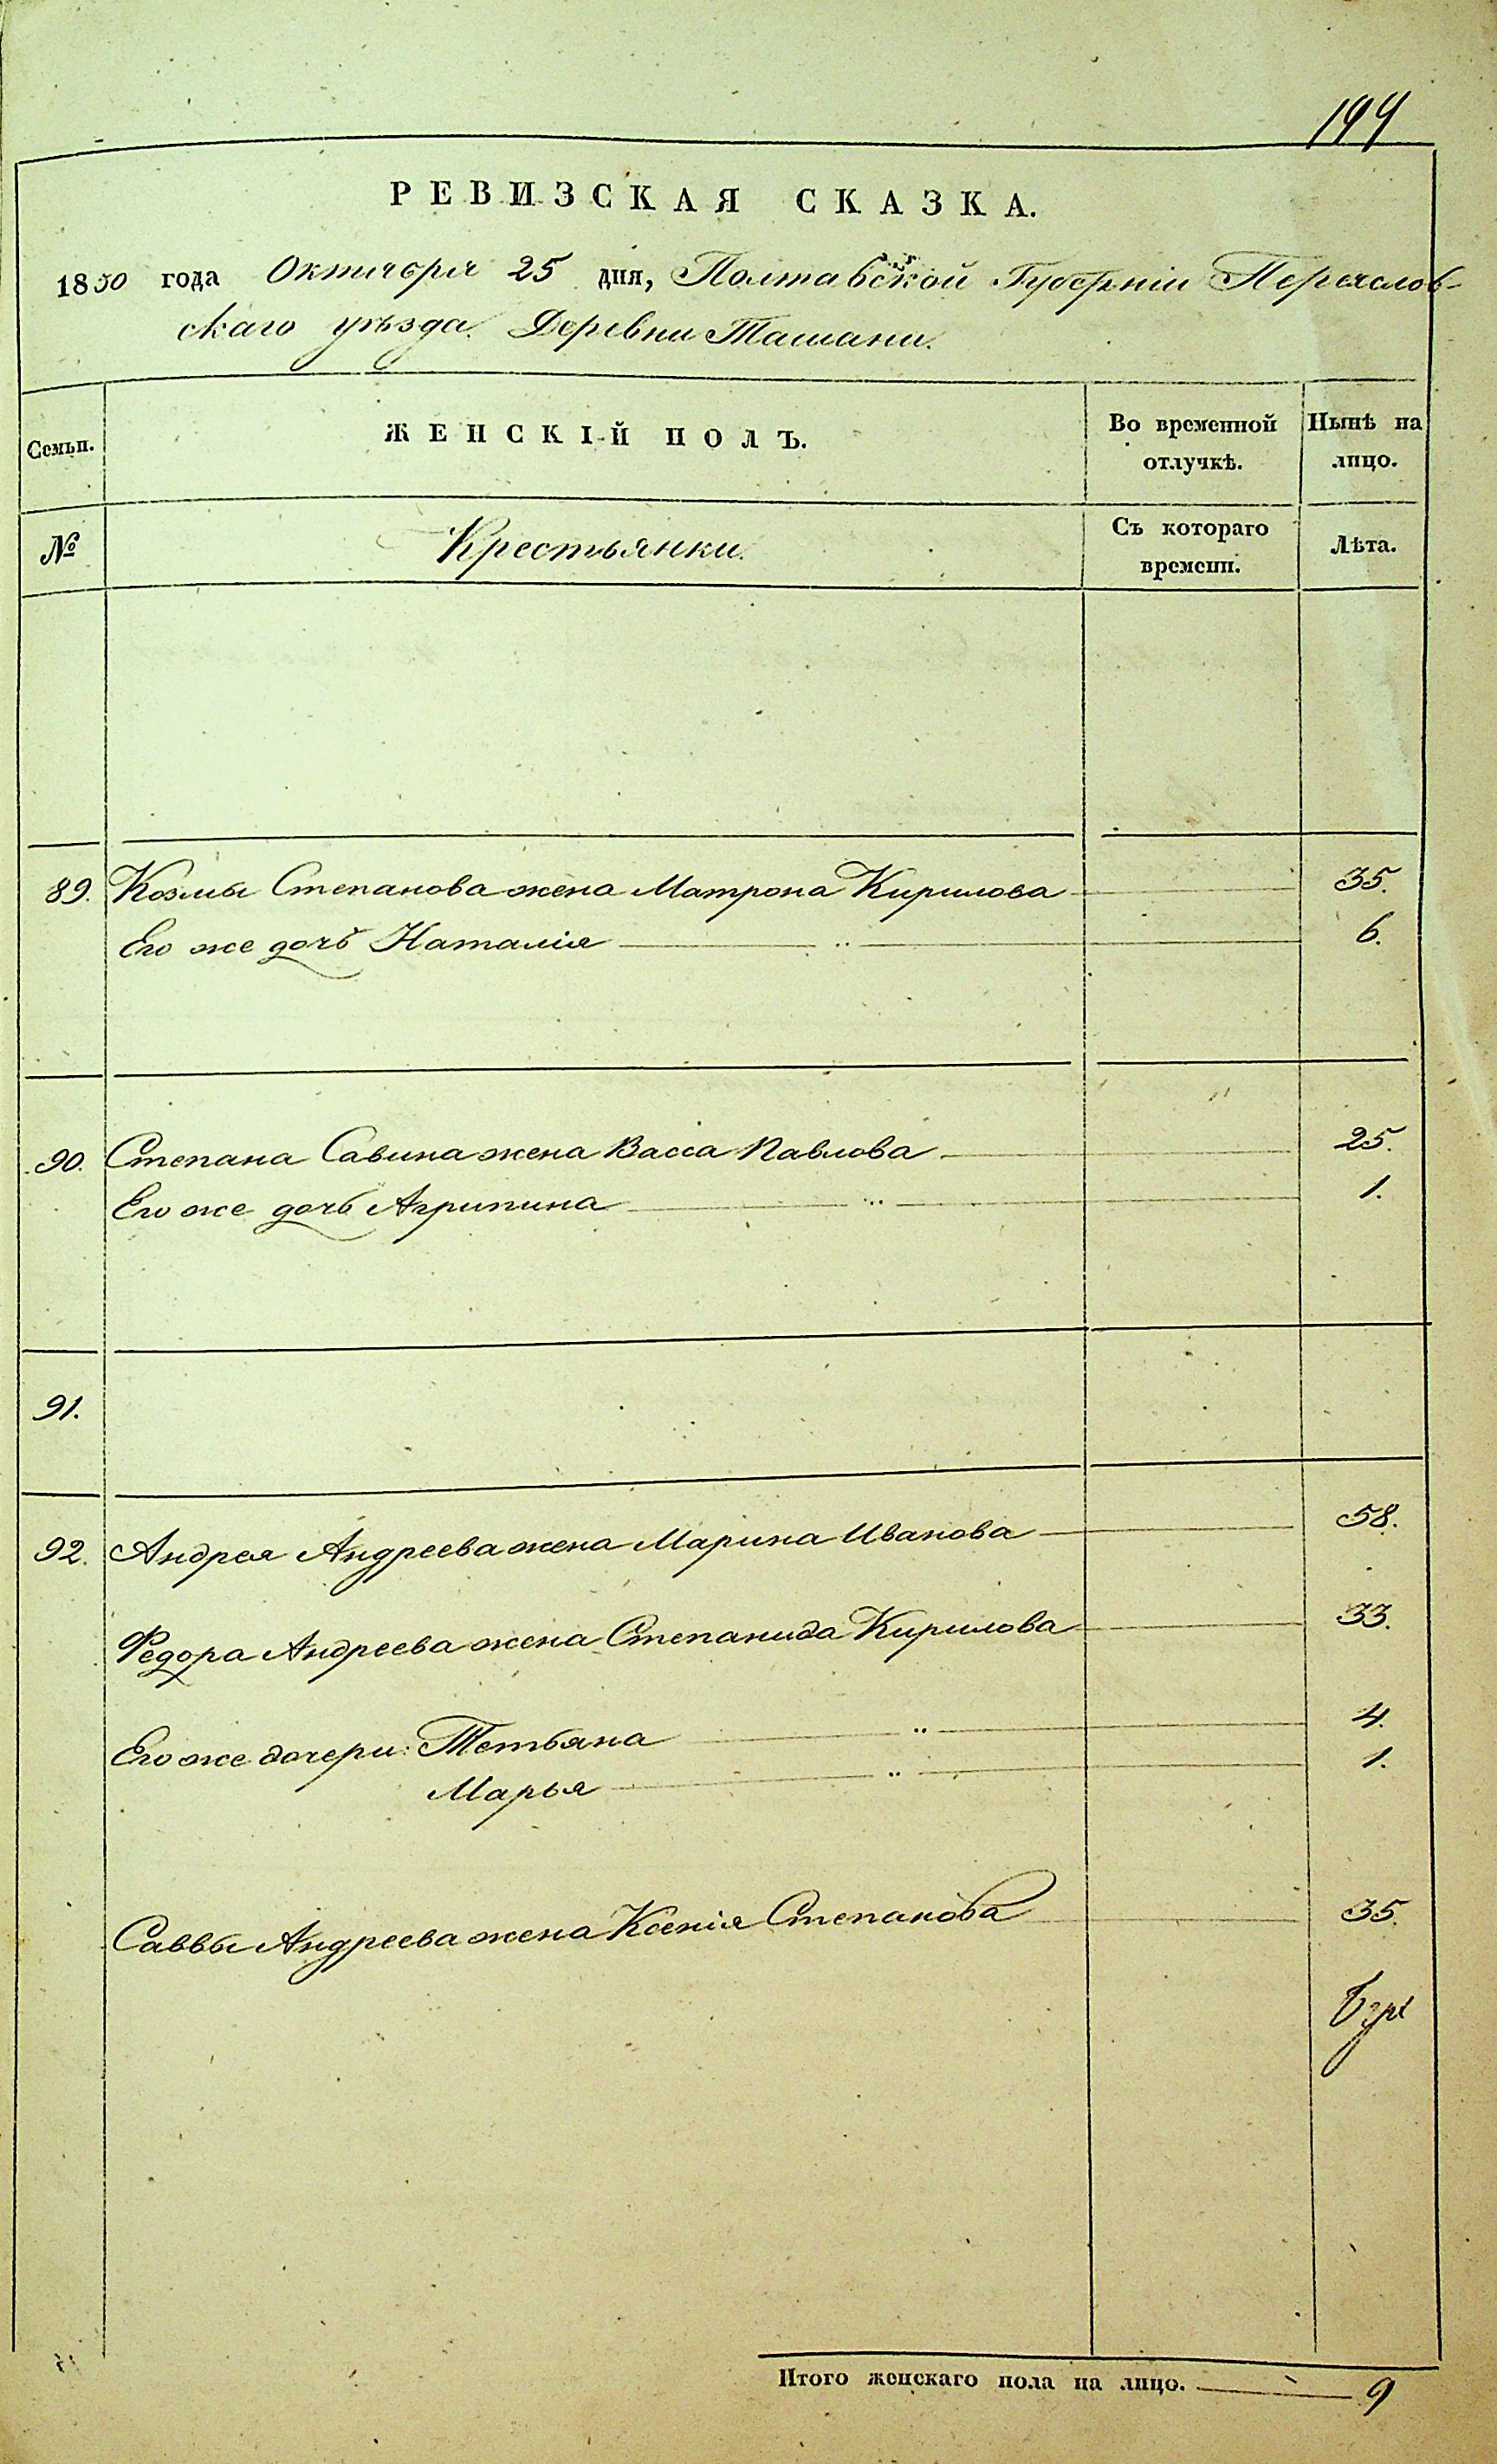 199
РЕВИЗСКАЯ СКАЗКА.
1850 года Октября 25 дня, Полтавской Губерніи Переяслов-
скаго уѣзда. Деревни Ташани.
Семьи. ЖЕНСКІЙ ПОЛЪ. Во временной отлучкѣ. Нынѣ на лицо.
№ Крестьянки. Съ котораго времени. Лѣта.
89. Козмы Степанова жена Матрона Кирилова 35.
Его же дочь Наталія 6.
90. Степана Савина жена Васса Павлова 25.
Его же дочь Агрипина 1.
91.
92. Андрея Андреева жена Марина Иванова 58.
Федора Андреева жена Степанида Кирилова 33.
Его же дочери: Тетьяна 4.
Марья 1.
Саввы Андреева жена Ксенія Степанова 35.
Итого женскаго пола на лицо. 9